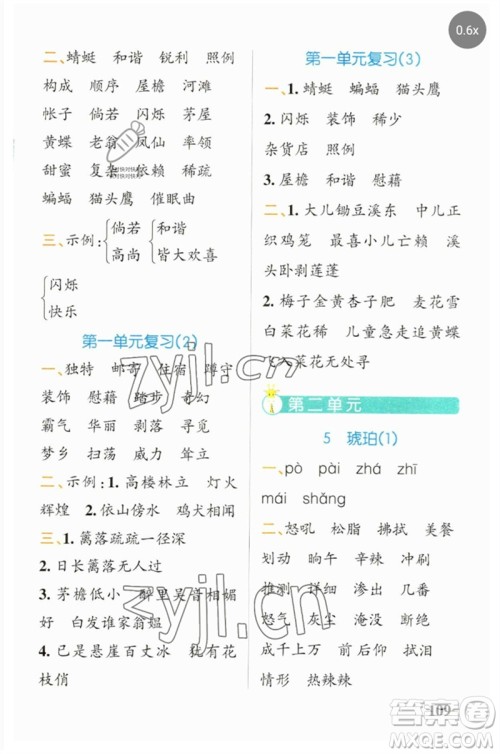 0.6x
二、蜻蜓 和谐 锐利 照例
构成 顺序 屋檐 河滩
帐子 倘若 闪烁 茅屋
黄蝶 老翁 凤仙 率领
甜蜜 复杂 依赖 稀疏
蝙蝠 猫头鹰 催眠曲
三、示例:{倘若 {和谐
高尚 皆大欢喜
{闪烁
快乐
第一单元复习(2)
一、独特 邮寄 住宿 蹲守
装饰 慰藉 踏步 奇幻
霸占 华丽 剥落 寻觅
梦乡 成熟 威力 卧倒
二、示例:1.高楼林立 灯火
辉煌 2.依山傍水 鸡犬相闻
三、1.篱落疏疏一径深
2.日长篱落无人过
3.茅檐低小 醉里吴音相媚
好 白发谁家翁媪
4.已是悬崖百丈冰 犹有花
枝俏
第一单元复习(3)
一、1.蜻蜓 蝙蝠 猫头鹰
2.闪烁 装饰 稀少
杂货店 照例
3.屋檐 和谐 慰藉
二、1.大儿锄豆溪东 中儿正
织鸡笼 最喜小儿亡赖 溪
头卧剥莲蓬
2.梅子金黄杏子肥 麦花雪
白菜花稀 儿童急走追黄蝶
飞入菜花无处寻
第二单元
5 琥珀(1)
一、pò pài zhá zhī
mái shǎng
二、怒吼 松脂 拂拭 美餐
划动 前俯 辛辣 冲刷
推测 详细 渗出 几番
怒气 灰尘 淹没 断绝
成千上万 前俯后仰
情形 热辣辣
109
zyjl.cn
zyjl.cn
答案圈
MXQE.COM